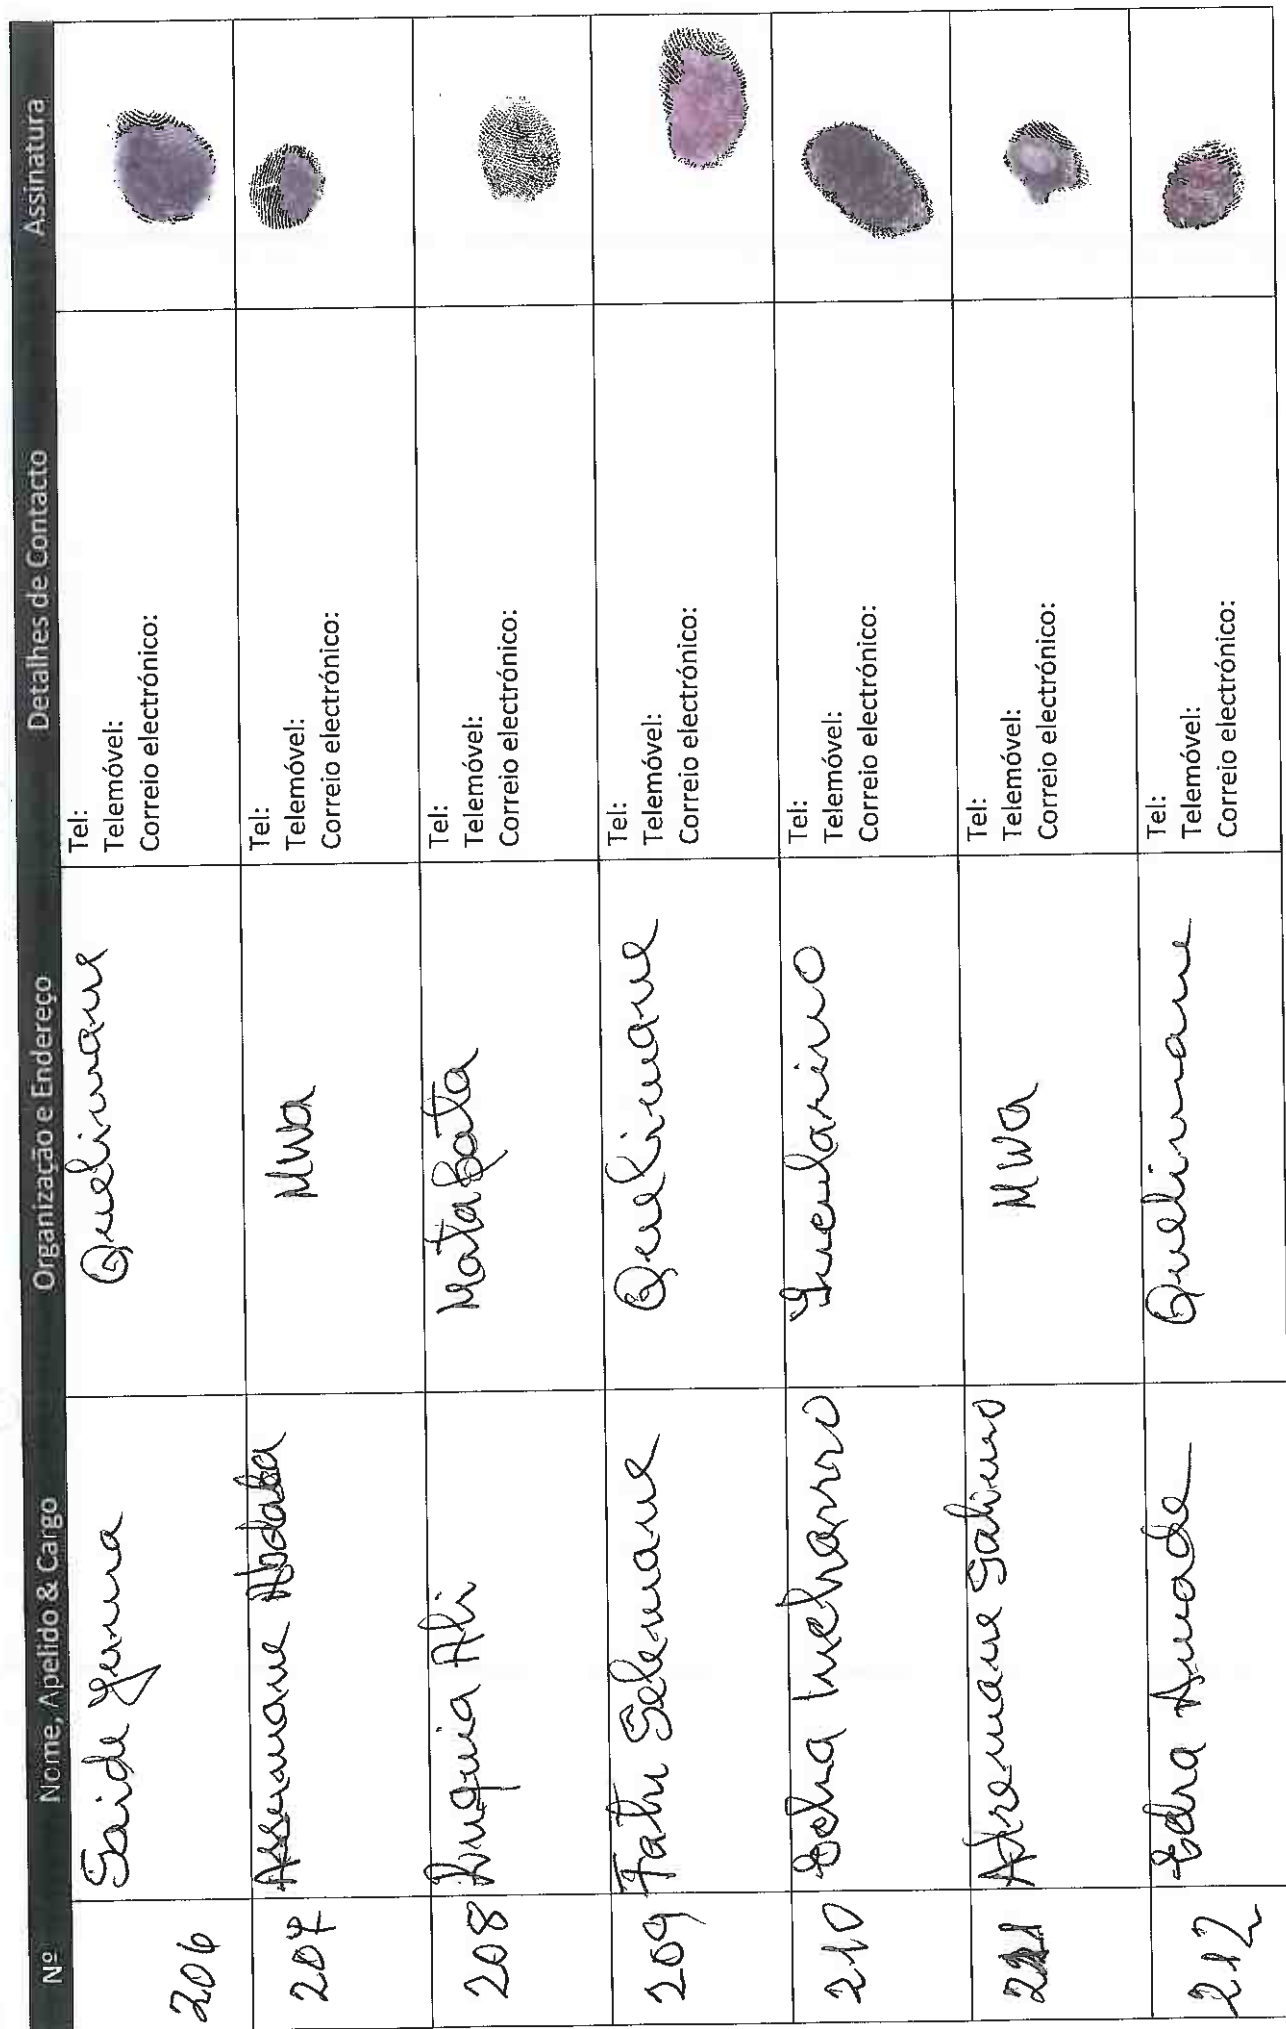 Nº Nome, Apelido & Cargo Organização e Endereço Detalhes de Contacto Assinatura
206 Saide Quelimane
Tel:
Telemóvel:
Correio electrónico:
207 Assemane Abdala MWA
Tel:
Telemóvel:
Correio electrónico:
208 Ruquia Ali
Tel:
Telemóvel:
Correio electrónico:
209 Fatu Selemane Quelimane
Tel:
Telemóvel:
Correio electrónico:
210
Tel:
Telemóvel:
Correio electrónico:
MWA
Tel:
Telemóvel:
Correio electrónico:
212 Amade Quelimane
Tel:
Telemóvel:
Correio electrónico: